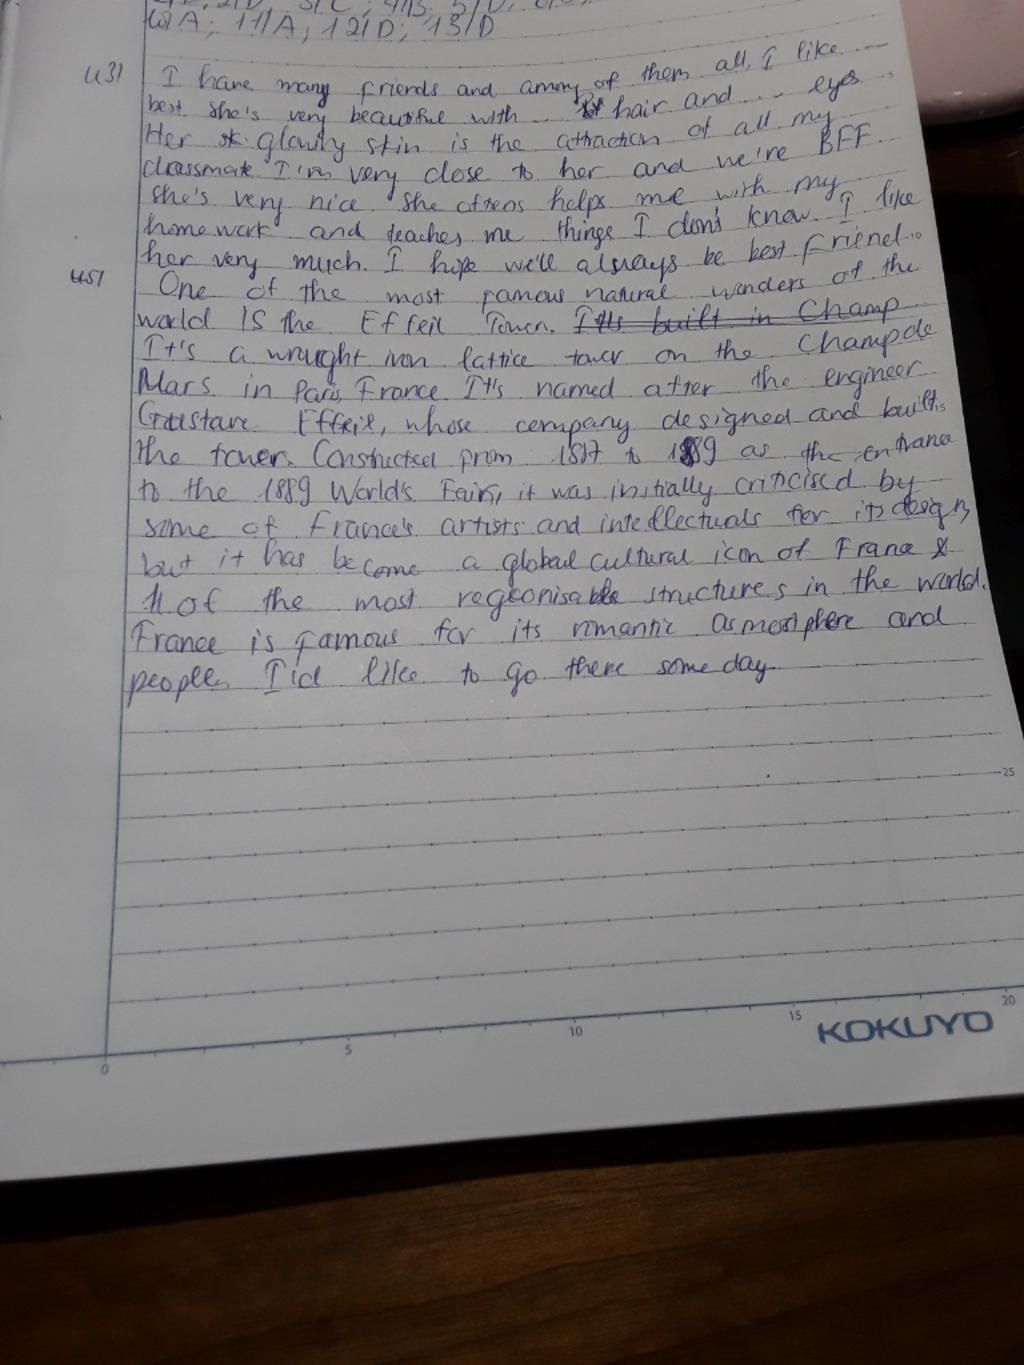 10/A; 11/A; 12/D; 13/D
U3/ I have many friends and among of them all, I like ....
best. She's very beautiful with ... hair and ... eyes.
Her glowing skin is the attraction of all my
classmate. I'm very close to her and we're BFF.
She's very nice. She oftens helps me with my
homework and teaches me things I don't know. I like
her very much. I hope we'll always be best friend.
U5/ One of the most famous natural wonders of the
world is the Effeil Tower. It's built in Champ
It's a wrought iron lattice tower on the Champ de
Mars in Paris, France. It's named after the engineer
Gustave Effeil, whose company designed and built
the tower. Constructed from 1887 to 1889 as the entrance
to the 1889 World's Fair, it was initially criticised by
some of France's artists and intellectuals for its design,
but it has become a global cultural icon of France &
1 of the most regconisable structures in the world.
France is famous for its romantic asmosphere and
people. I'd like to go there someday
25
0 5 10 15 20
KOKUYO